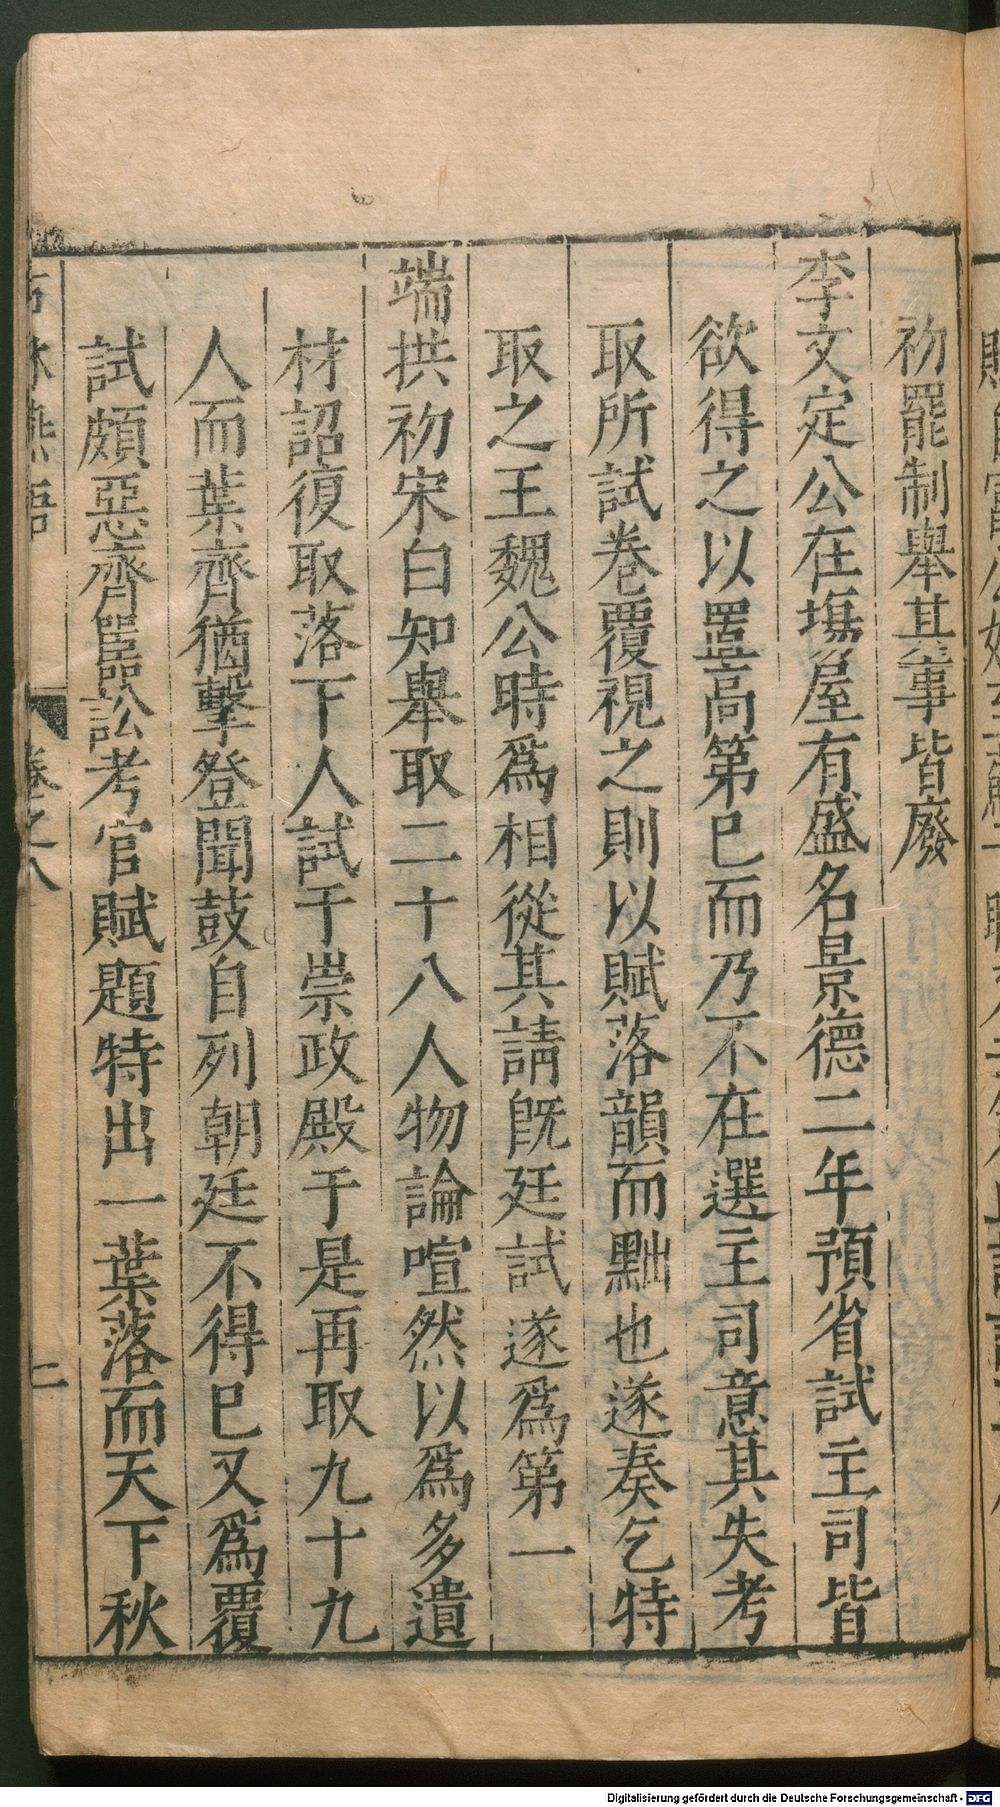 初罷制舉其事皆廢
李文定公在塲屋有盛名景德二年預省試主司皆
欲得之以置高第已而乃不在選主司意其失考
取所試卷覆視之則以賦落韻而黜也遂奏乞特
取之王魏公時爲相從其請旣廷試遂爲第一
端拱初宋白知舉取二十八人物論喧然以爲多遺
材詔復取落下人試于崇政殿于是再取九十九
人而葉齊猶擊登聞鼓自列朝廷不得已又爲覆
試頗惡齊嚚訟考官賦題特出一葉落而天下秋
卷之八
二
Digitalisierung gefördert durch die Deutsche Forschungsgemeinschaft - DFG